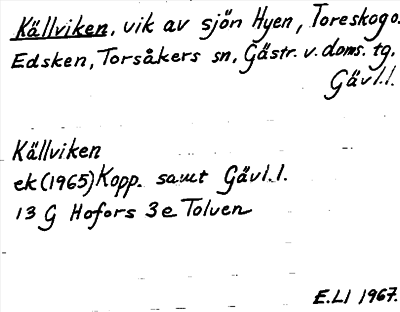 Källviken, vik av sjön Hyen, Toreskogo.
Edsken, Torsåkers sn, Gästr. v. doms. tg,
Gävl.l.
Källviken
ek (1965) Kopp. samt Gävl.l.
13 G Hofors 3 e Tolven
E.LI 1967.